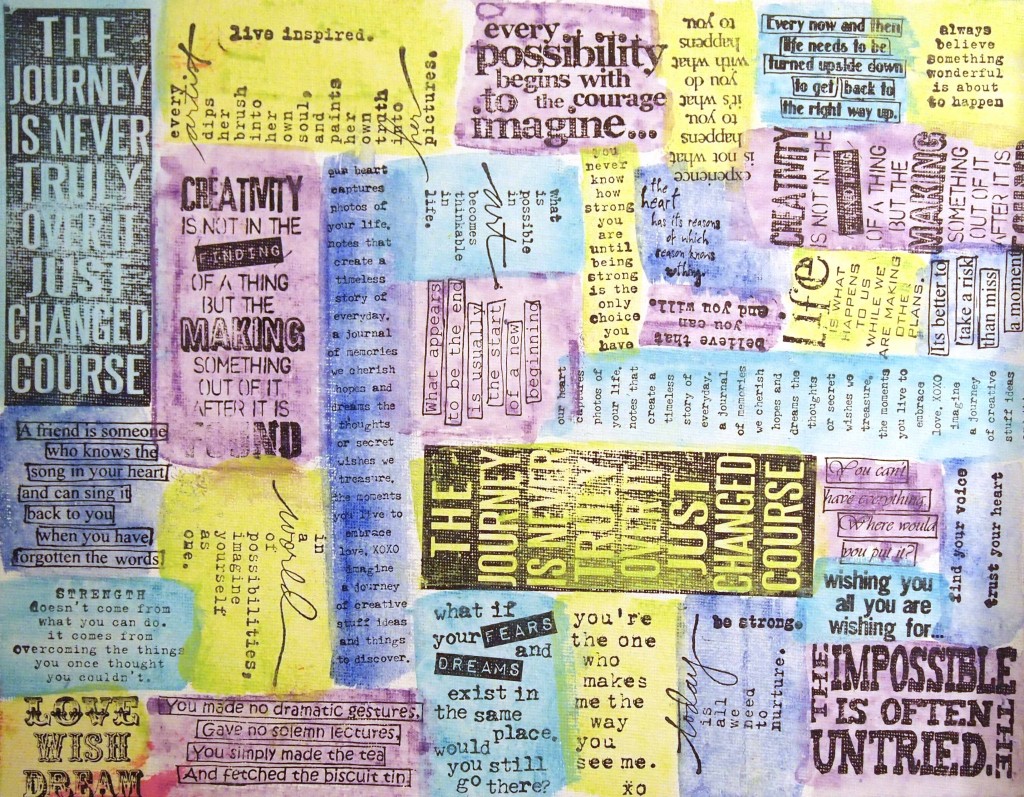 THE
JOURNEY
IS NEVER
TRULY
OVER IT
JUST
CHANGED
COURSE
live inspired.
every
artist
dips
her
brush
into
her
own
soul,
and
paints
her
own
truth
into
pictures.
every
possibility
begins with
to the courage
imagine...
experience
is not what
happens
to you,
it's what
you do
with what
happens
to you
Every now and then
life needs to be
turned upside down
to get back to
the right way up.
always
believe
something
wonderful
is about
to happen
CREATIVITY
IS NOT IN THE
FINDING
OF A THING
BUT THE
MAKING
SOMETHING
OUT OF IT
AFTER IT IS
FOUND
our heart
captures
photos of
your life,
notes that
create a
timeless
story of
everyday.
a journal
of memories
we cherish
hopes and
dreams the
thoughts
or secret
wishes we
treasure.
the moments
you live to
embrace
love, XOXO
imagine
a journey
of creative
stuff ideas
and things
to discover.
what
is
possible
in
art
becomes
thinkable
in
life.
you
never
know
how
strong
you
are
until
being
strong
is the
only
choice
you
have
the
heart
has its reasons
of which
reason knows
nothing.
CREATIVITY
IS NOT IN THE
FINDING
OF A THING
BUT THE
MAKING
SOMETHING
OUT OF IT
AFTER IT IS
What appears
to be the end
is usually
the start
of a new
beginning
believe that
you can
and you will.
life
IS WHAT
HAPPENS
TO US
WHILE WE
ARE MAKING
OTHER
PLANS.
It is better to
take a risk
than miss
a moment
our heart
captures
photos of
your life,
notes that
create a
timeless
story of
everyday.
a journal
of memories
we cherish
hopes and
dreams the
thoughts
or secret
wishes we
treasure.
the moments
you live to
embrace
love, XOXO
imagine
a journey
of creative
stuff ideas
A friend is someone
who knows the
song in your heart
and can sing it
back to you
when you have
forgotten the words
in
a
world
of
possibilities,
imagine
yourself
as
one.
THE
JOURNEY
IS NEVER
TRULY
OVER IT
JUST
CHANGED
COURSE
You can't
have everything
Where would
you put it?
find your voice
trust your heart
STRENGTH
doesn't come from
what you can do.
it comes from
overcoming the things
you once thought
you couldn't.
what if
your FEARS
and
DREAMS
exist in
the same
place.
would
you still
go there?
you're
the one
who
makes
me the
way
you
see me.
xo
be strong.
today
is
all
we
need
to
nurture.
wishing you
all you are
wishing for...
LOVE
WISH
DREAM
You made no dramatic gestures,
Gave no solemn lectures,
You simply made the tea
And fetched the biscuit tin
THE
IMPOSSIBLE
IS OFTEN
THE
UNTRIED.